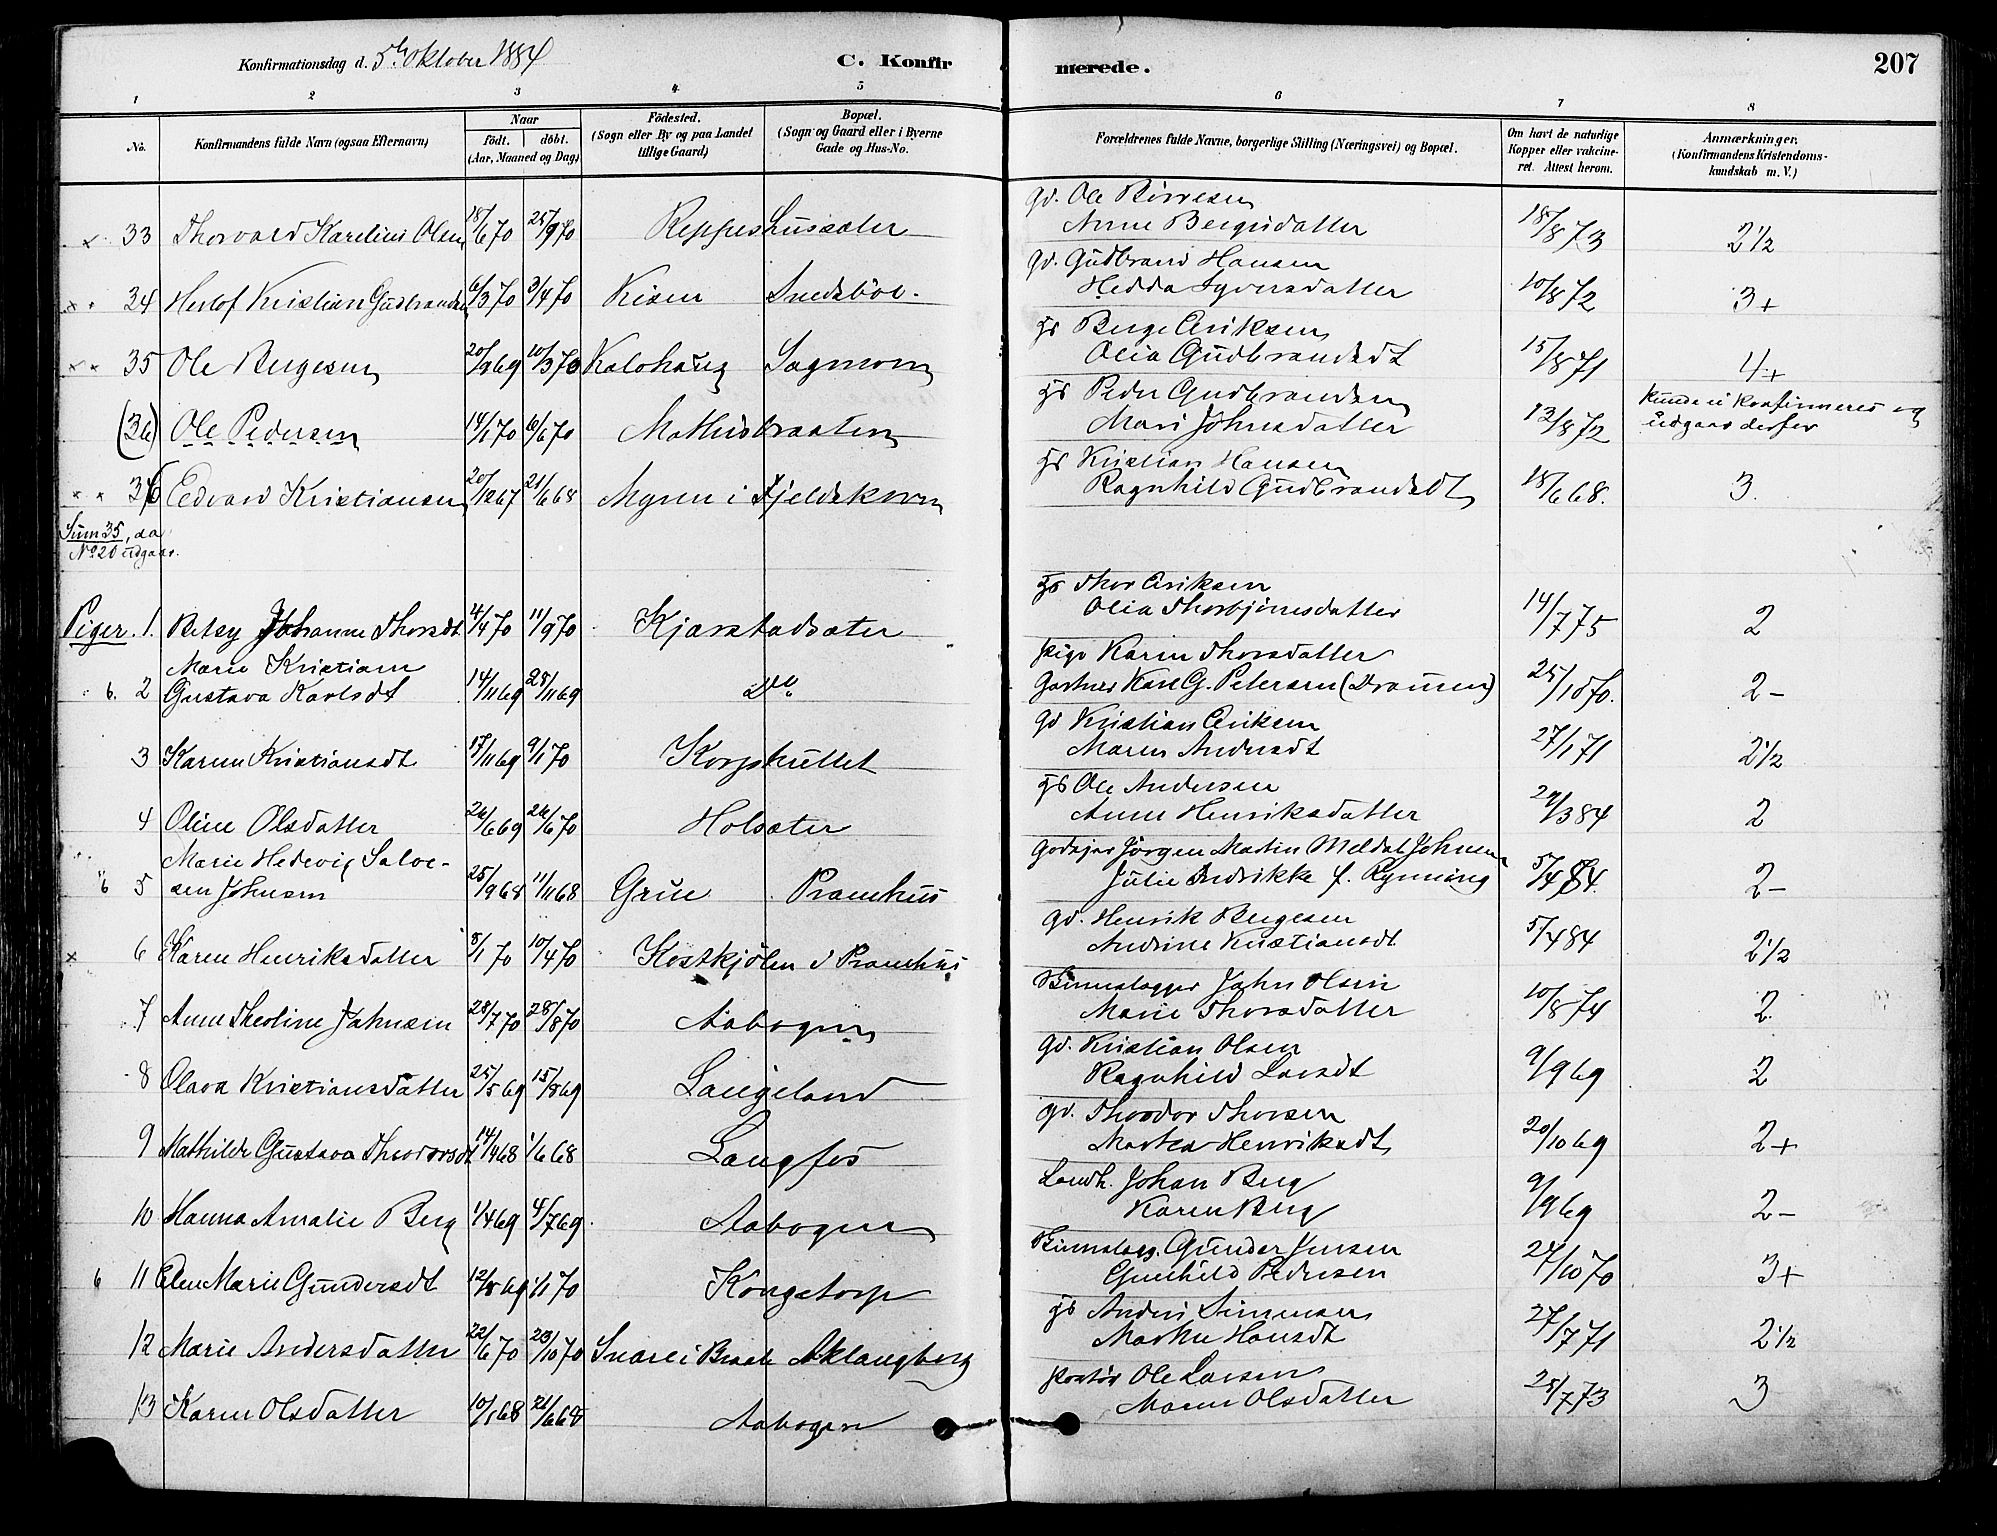 Konfirmationsdag d. 5te Oktober 1884
C. Konfirmerede.
207
1 2 3 4 5 6 7 8
No.
Konfirmandens fulde Navn (ogsaa Efternavn)
Naar
födt. döbt.
(Aar, Maaned og Dag)
Födested.
(Sogn eller By og paa Landet
tillige Gaard)
Bopæl.
(Sogn og Gaard eller i Byerne
Gade og Hus-No.
Forældrenes fulde Navne, borgerlige Stilling (Næringsvei) og Bopæl.
Om havt de naturlige
Kopper eller vakcine-
ret. Attest herom.
Anmærkninger.
(Konfirmandens Kristendoms-
kundskab m. V.)
gd. Ole Börresen
33 Thorvald Karelius Olsen 18/6 70 25/9 70 Reppeshussæter Anne Bergesdatter 18/8 73 2 1/2
gd. Gudbrand Hansen
34 Herlof Kristian Gudbrandsen 6/3 70 3/4 70 Kisen Snedsböl. Hedda Iversdatter 10/8 72 3+
gs Berge Eriksen
35 Ole Bergesen 20/ 69 10/3 70 Kalohaug Sagmoen Olia Gudbrandsdt 15/8 71 4+
gs Peder Gudbrandsen
(36) Ole Pedersen 14/1 70 6/6 70 Mathisbraaten Mari Johnsdatter 13/8 72 Kunde ei konfirmeres og
udgaar derfor
gs Kristian Hansen
36 Edvard Kristiansen 20/12 67 21/6 68 Myren i Fjeldskoven Ragnhild Gudbrandsdt 18/6 68. 3.
Sum 35, da
No 20 udgaar.
gs Thor Eriksen
Piger. 1. Betsy Johanne Thorsdt 4/4 70 11/9 70 Kjærstadsæter Olia Thorbjörnsdatter 14/7 75 2
Marie Kristiane
pige Karin Thorsdatter
6. 2 Gustava Karlsdt 14/11 69 28/11 69 Do Gartner Karl G. Petersen (Drammen) 25/10 70. 2-
gd Kristian Eriksen
3 Karen Kristiansdt 17/11 69 9/1 70 Korpskullet Maren Andersdt 27/1 71 2 1/2
gs Ole Andersen
4 Oline Olsdatter 26/6 69 26/6 70 Holsæter Anne Henriksdatter 2/3 84 2
Marie Hedevig Salve-
Godsejer Jörgen Martin Meldal Johnsen
6 5 sen Johnsen 25/9 68 11/11 68 Grue Pramhus Julie Fredrikke f. Rynning 5/4 84. 2-
gd. Henrik Bergesen
6 Karen Henriksdatter 8/1 70 10/4 70 Kostkjölen i Pramhus Andrine Kristiansdt 5/4 84 2 1/2
John Olsen
7 Anne Theoline Johnsen 28/7 70 28/8 70 Aabogen Marie Thorsdatter 10/8 74 2.
gd. Kristian Olsen
8 Olava Kristiansdatter 25/5 69 15/8 69 Langeland Ragnhild Larsdt 9/9 69 2
gd. Thodor Thorsen
9 Mathilde Gustava Theodorsdt 14/4 68 1/6 68 Langfos Marthea Henriksdt 20/10 69 2+
Landh. Johan Berg
10 Hanna Amalie Berg 1/4 69 4/7 69 Aabogen Karen Berg 9/9 69 2-
Gunder Jensen
6 11 Elen Marie Gundersdt 12/8 69 1/1 70 Kongstorp Gunhild Pedersen 24/10 70 3+
gs Anders Simensen
12 Marie Andersdatter 22/6 70 23/10 70 Snare i Aklangberg Marthe Hansdt 27/7 71 2 1/2
Ole Larsen
13 Karen Olsdatter 10/1 68 21/6 68 Aabogen Maren Olsdatter 25/7 73 3